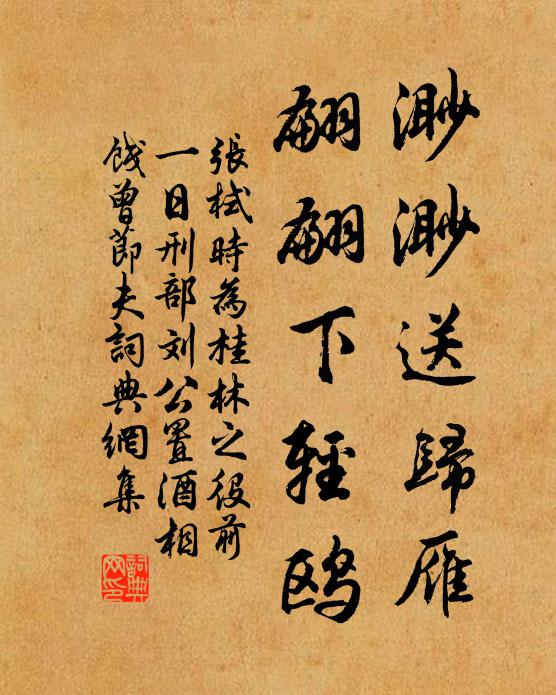 渺渺送歸雁
翩翩下輕鷗
張栻時為桂林之役前
一日刑部刘公置酒相
餞曾節夫詞典網集
詞典网印